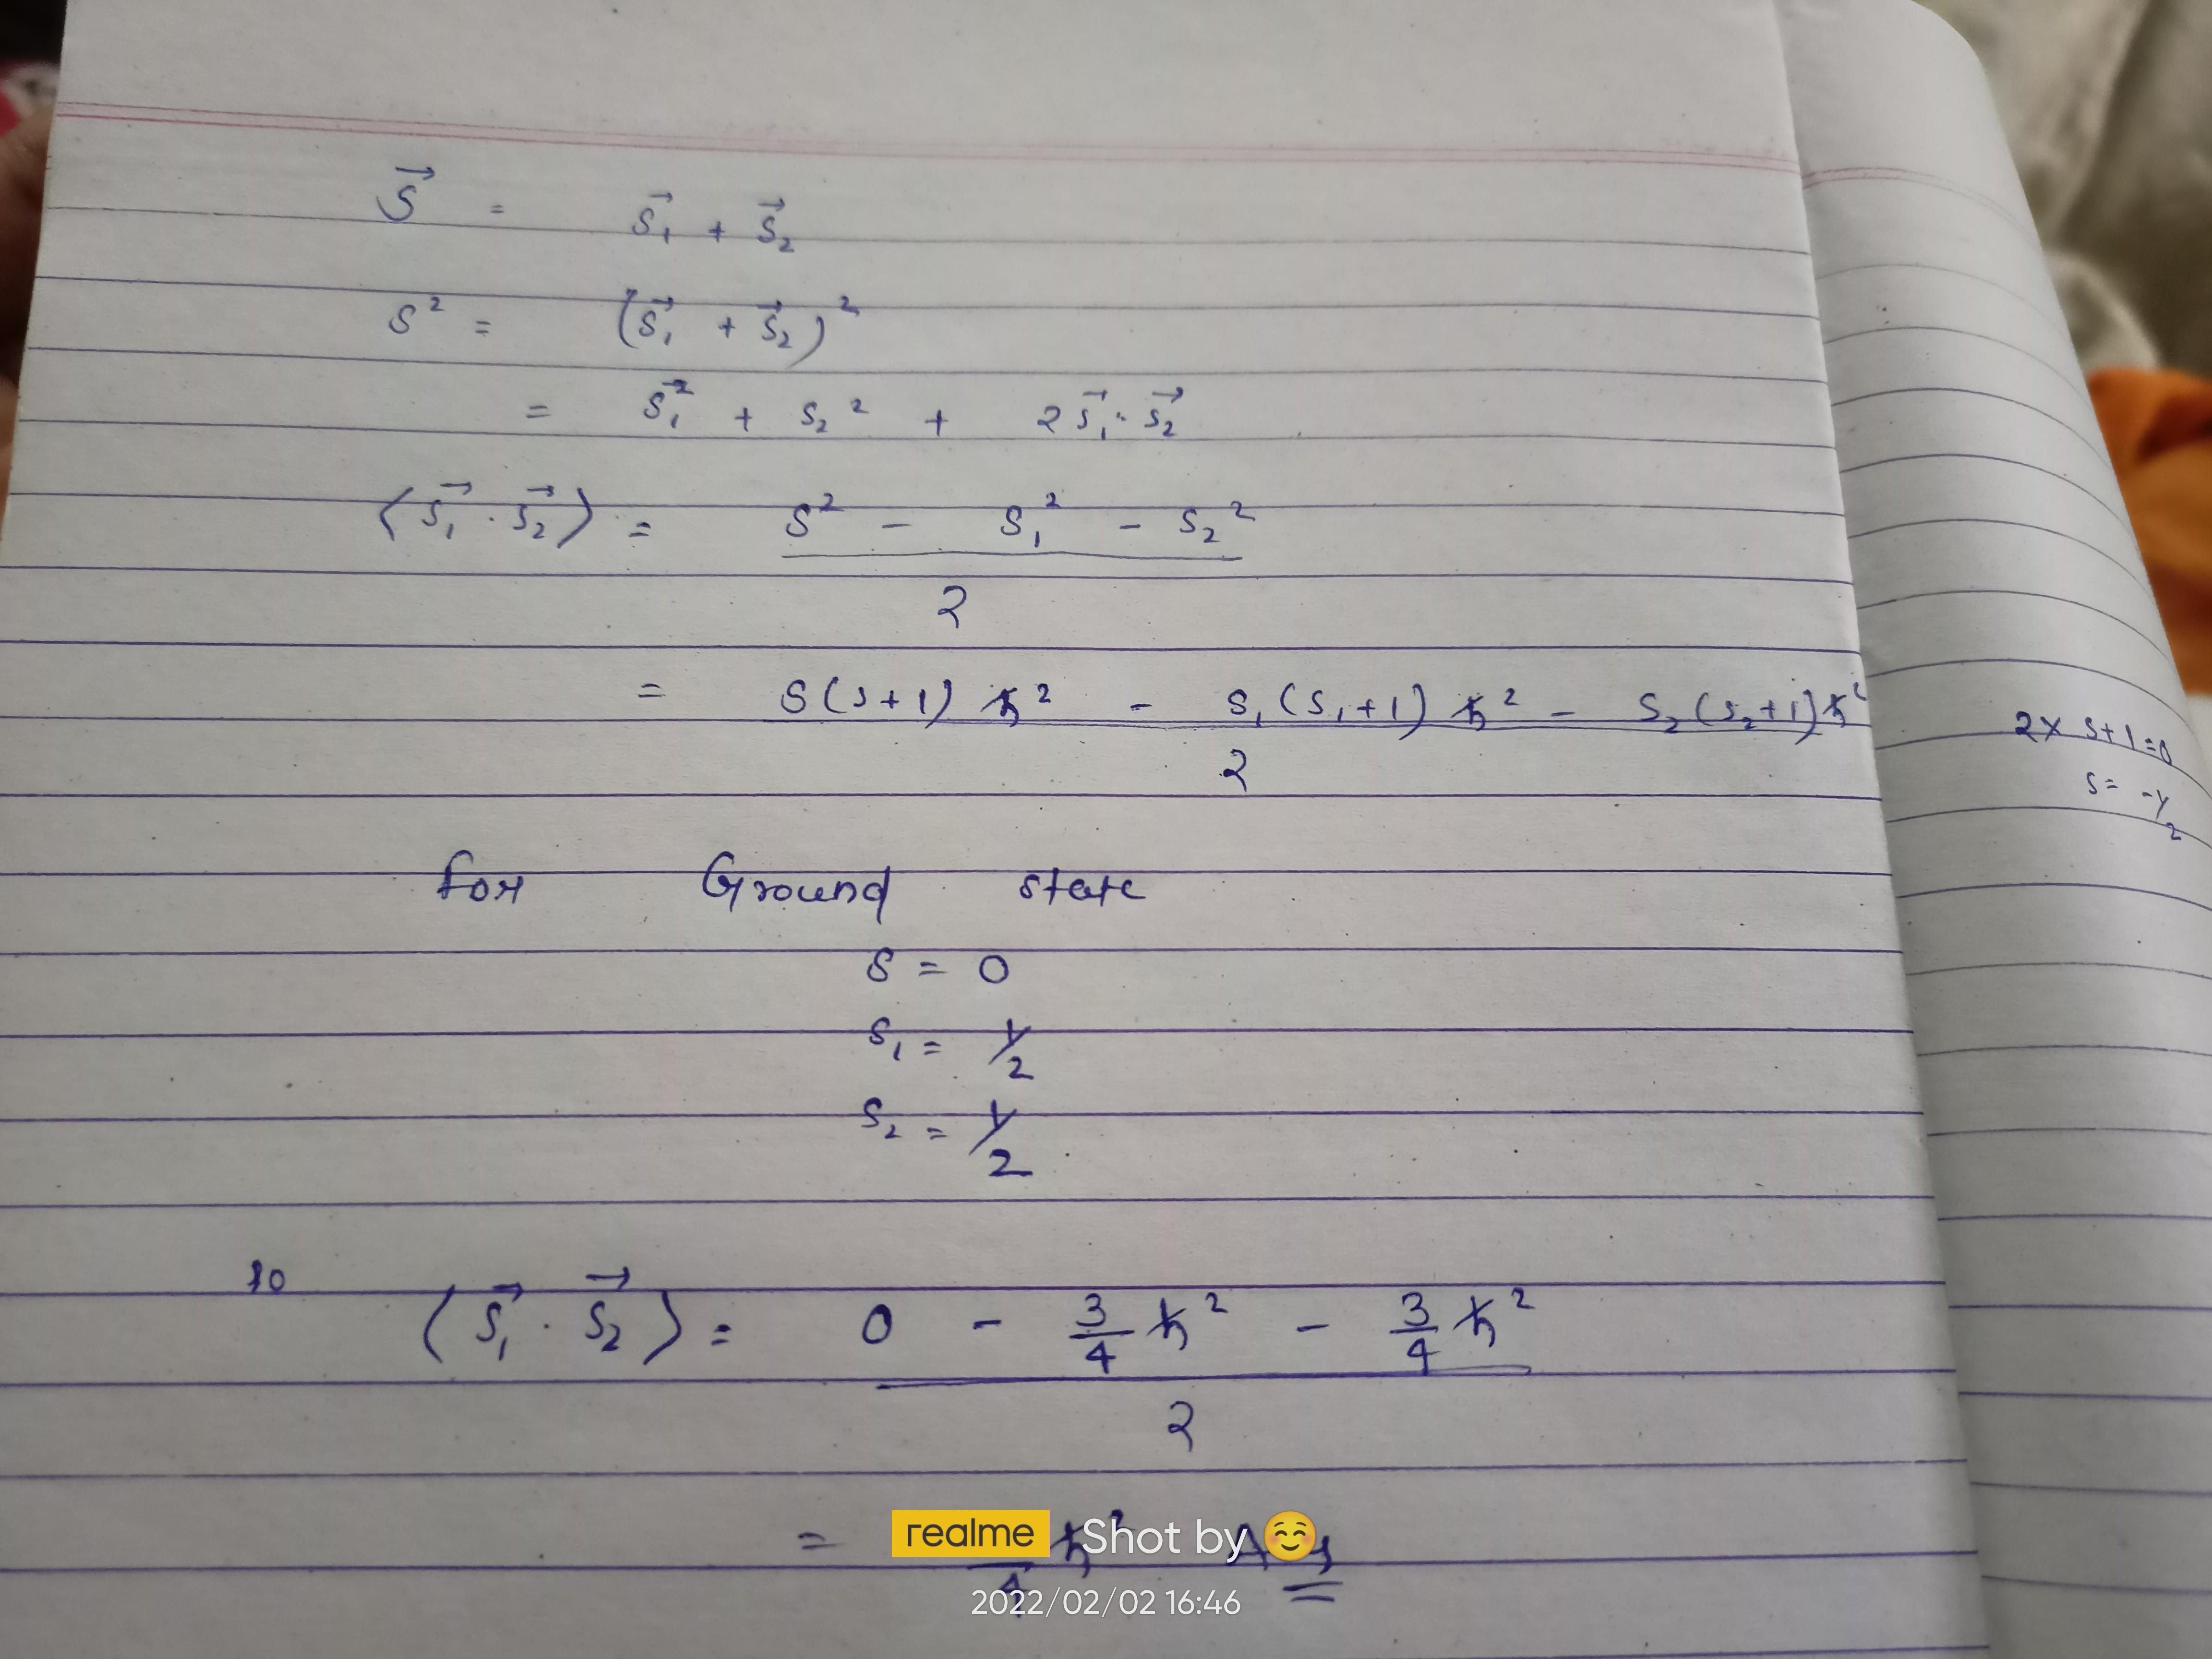 S⃗ = S⃗₁ + S⃗₂
S² = (S⃗₁ + S⃗₂)²
= S⃗₁² + S₂² + 2 S⃗₁ · S⃗₂
⟨S⃗₁ · S⃗₂⟩ = S² - S₁² - S₂²
2
= S(S+1) ℏ² - S₁(S₁+1) ℏ² - S₂(S₂+1) ℏ²
2
2 x S+1=0
S= -1/2
For Ground state
S = 0
S₁ = 1/2
S₂ = 1/2
⟨S⃗₁ · S⃗₂⟩ = 0 - 3/4 ℏ² - 3/4 ℏ²
2
= ℏ²
4
realme Shot by 😊
2022/02/02 16:46